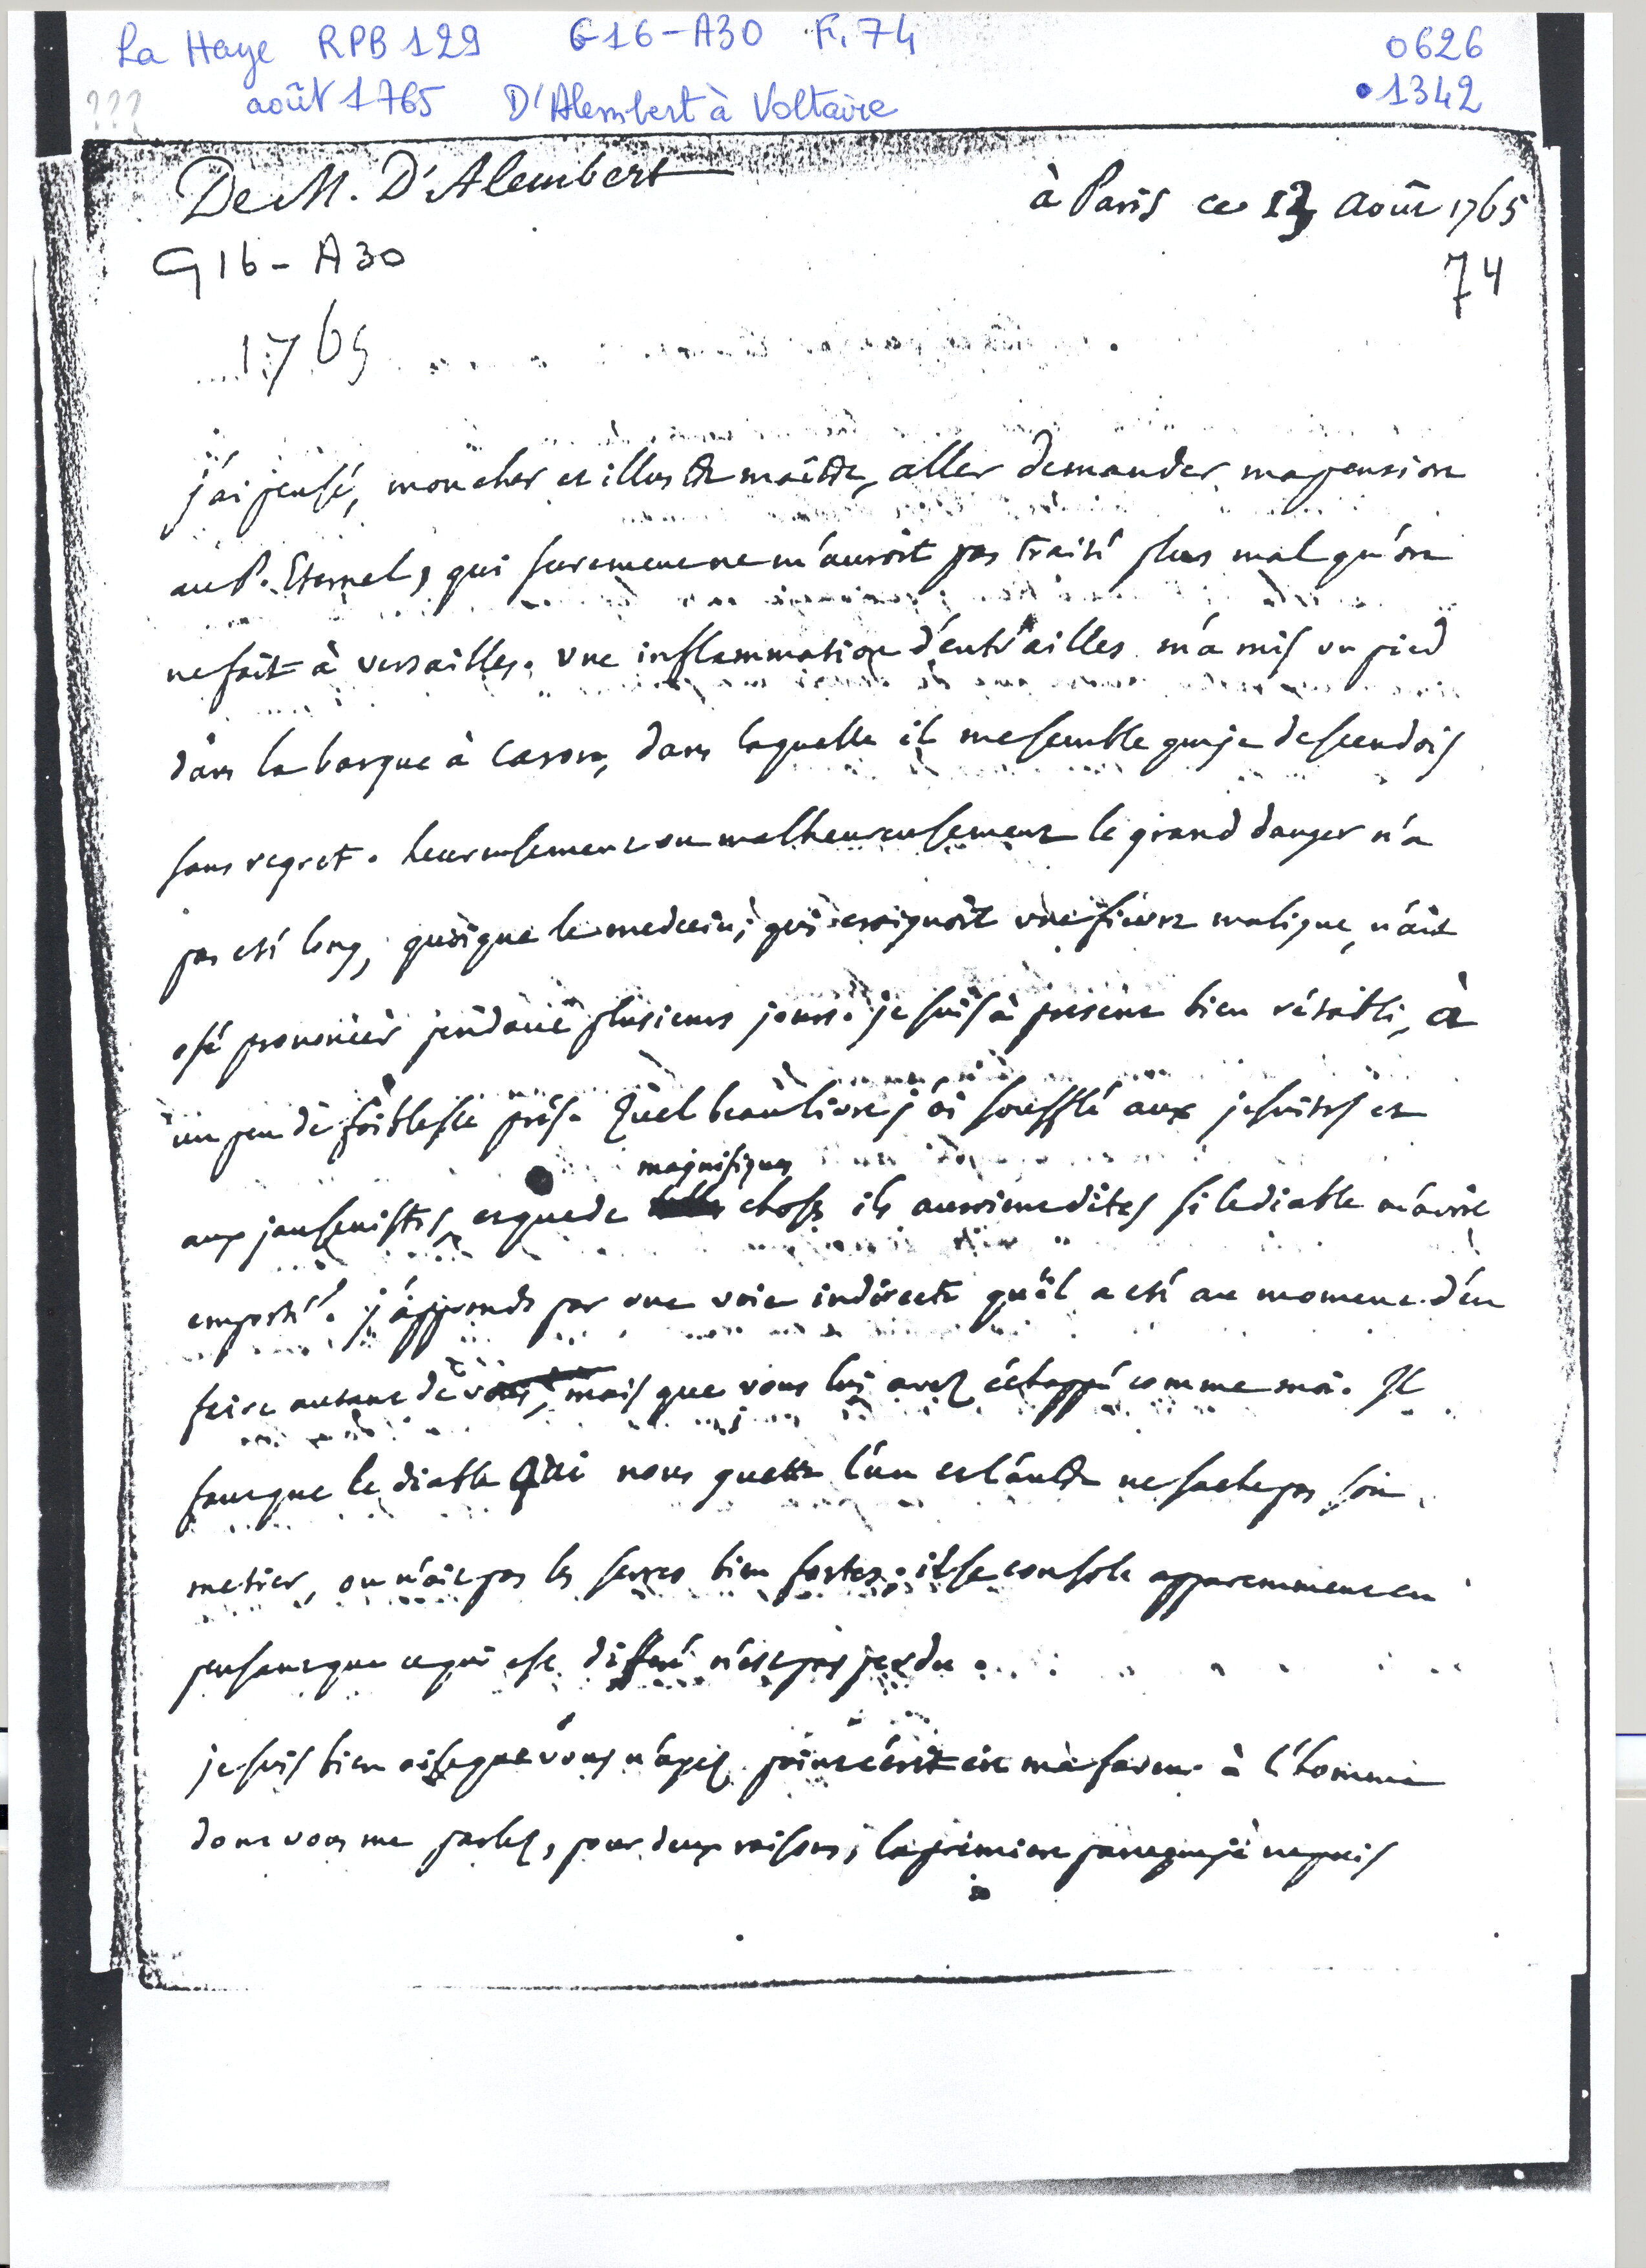 La Haye RPB 129 G16-A30 F. 74 0626
??? août 1765 D'Alembert à Voltaire 1342
De M. D'Alembert
à Paris ce 13 août 1765
G16-A30
74
1765
j'ai pensé, mon cher et illustre maître, aller demander ma pension
au P. Eternel, qui surement ne m'auroit pas traité plus mal qu'on
ne fait à versailles. une inflammation d'entrailles m'a mis un pied
dans la barque à caron, dans laquelle il me semble que je descendois
sans regret. heureusement ou malheureusement le grand danger n'a
pas eté long, quoique le medecin, qui craignoit une fievre maligne, n'ait
osé prononcer pendant plusieurs jours. je suis à present bien rétabli, à
un peu de foiblesse près. Quel beau livre j'ai soufflé aux jesuites et
magnifiques
aux jansenistes, et que de choses ils auroient dites si le diable m'avoit
emporté. j'apprends par une voie indirecte qu'il a eté au moment d'en
faire autant de vous, mais que vous lui avez échappé comme moi. Il
faut que le diable qui nous guette l'un et l'autre ne sache pas son
metier, ou n'ait pas les serres bien fortes. il se console apparemment en
pensant que ce qui est differé n'est pas perdu.
je suis bien aise que vous n'ayez point écrit en ma faveur à l'homme
dont vous me parlez, pour deux raisons; la premiere parce que je ne puis